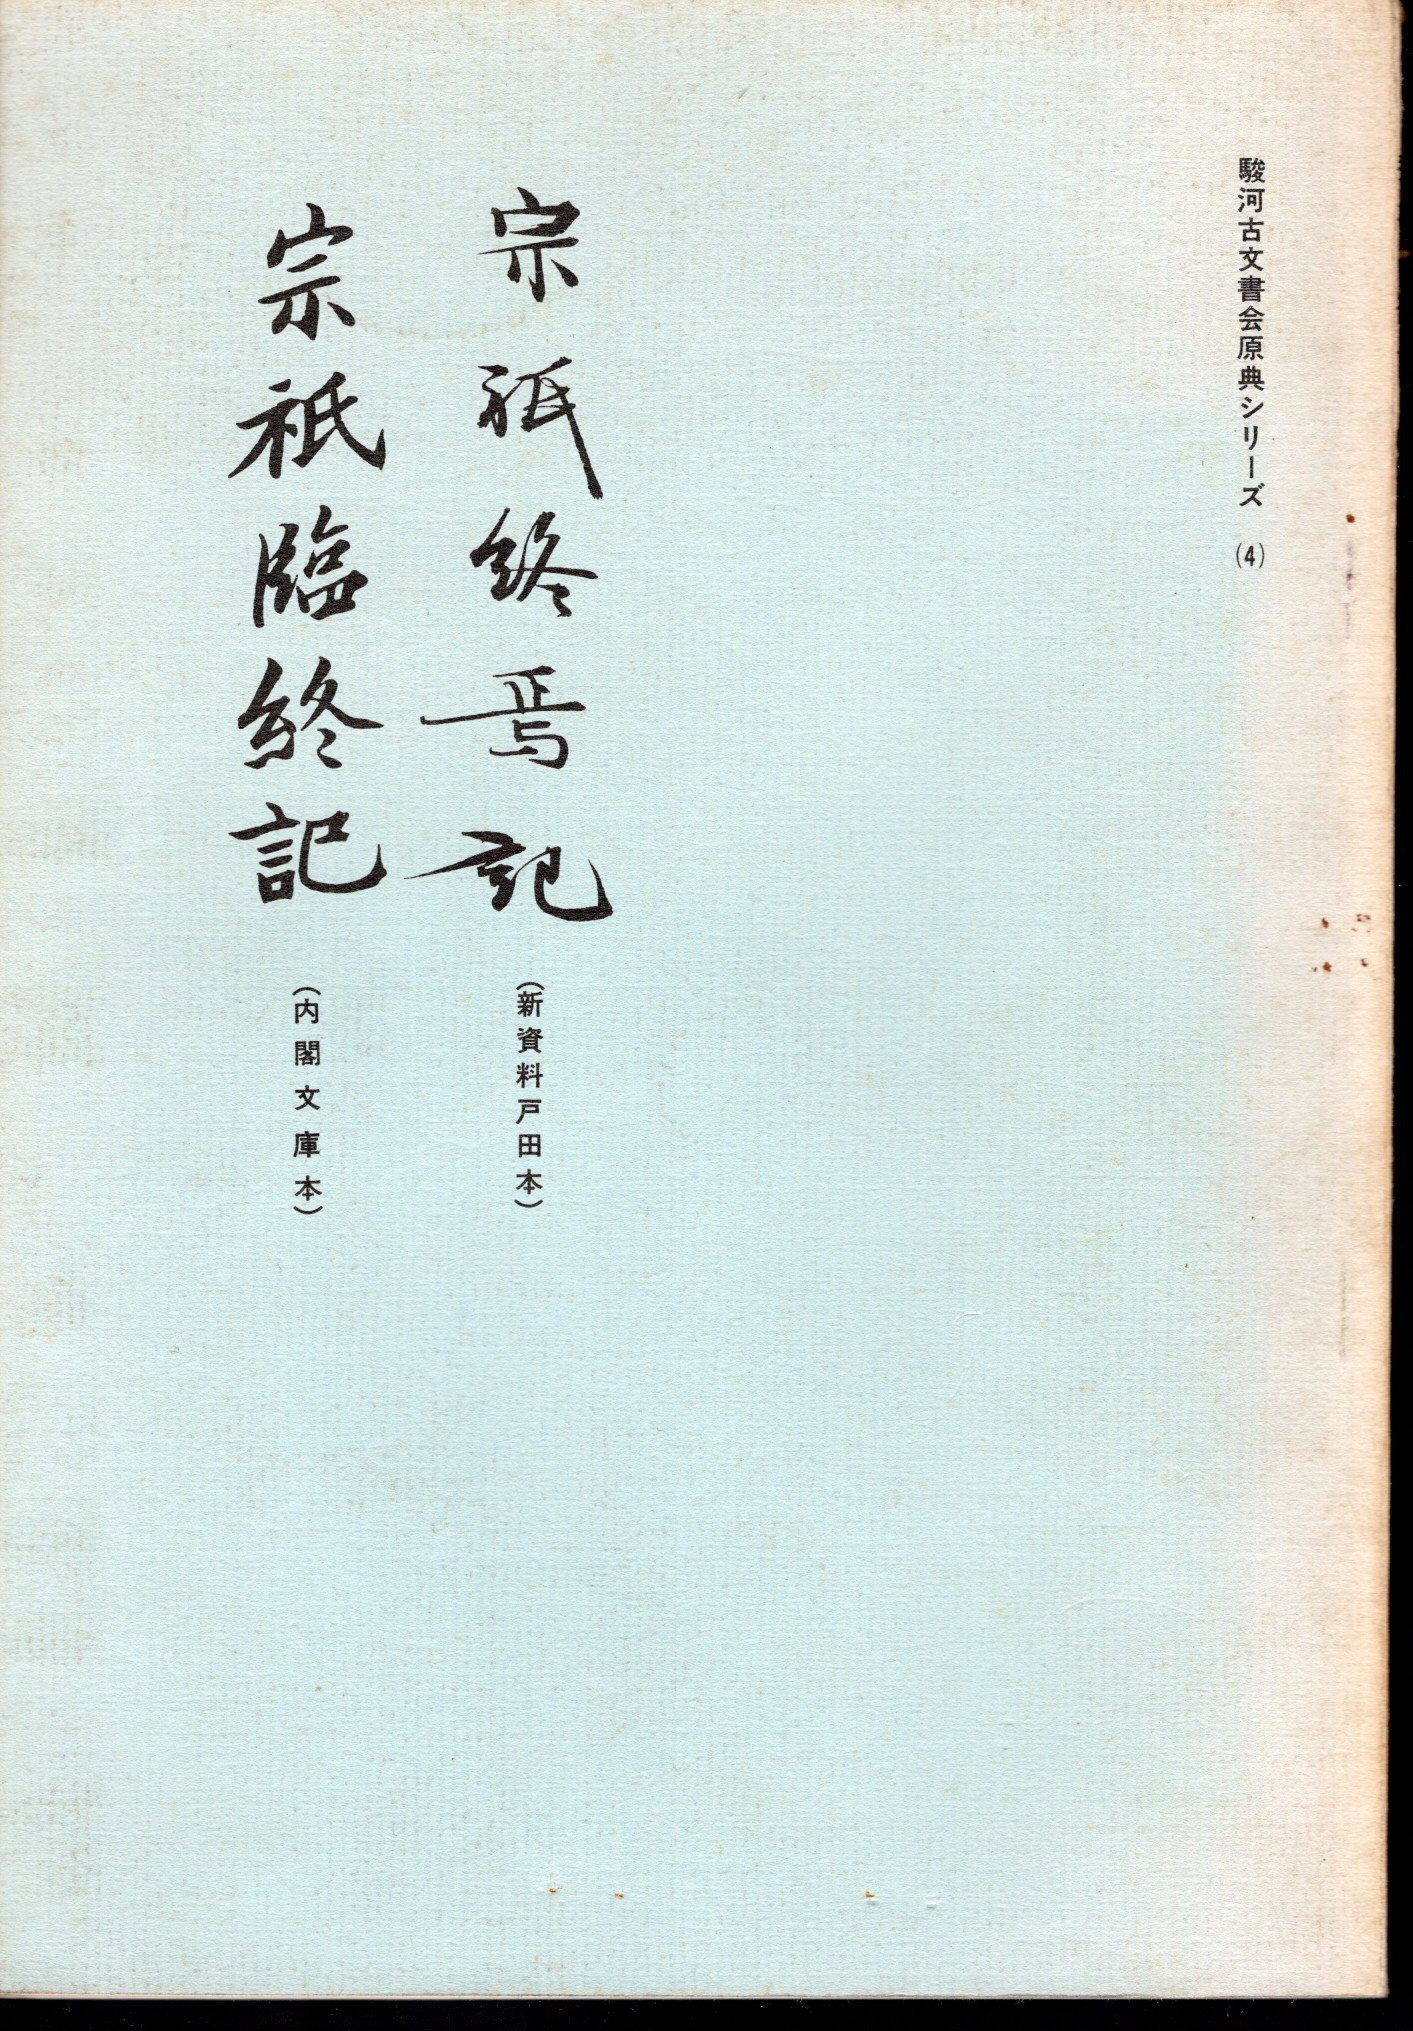 駿河古文書会原典シリーズ (4)
宗祇終焉記 (新資料戸田本)
宗祇臨終記 (内閣文庫本)